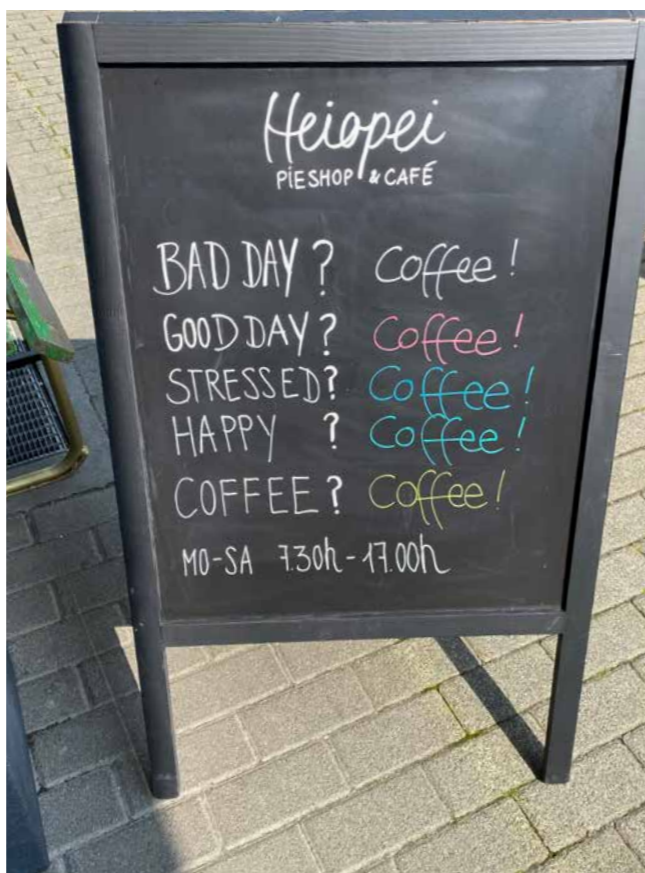 Heiopei
PiESHOP & CAFÉ
BAD DAY? Coffee!
GOOD DAY? Coffee!
STRESSED? Coffee!
HAPPY ? Coffee!
COFFEE? Coffee!
MO-SA 7.30h-17.00h